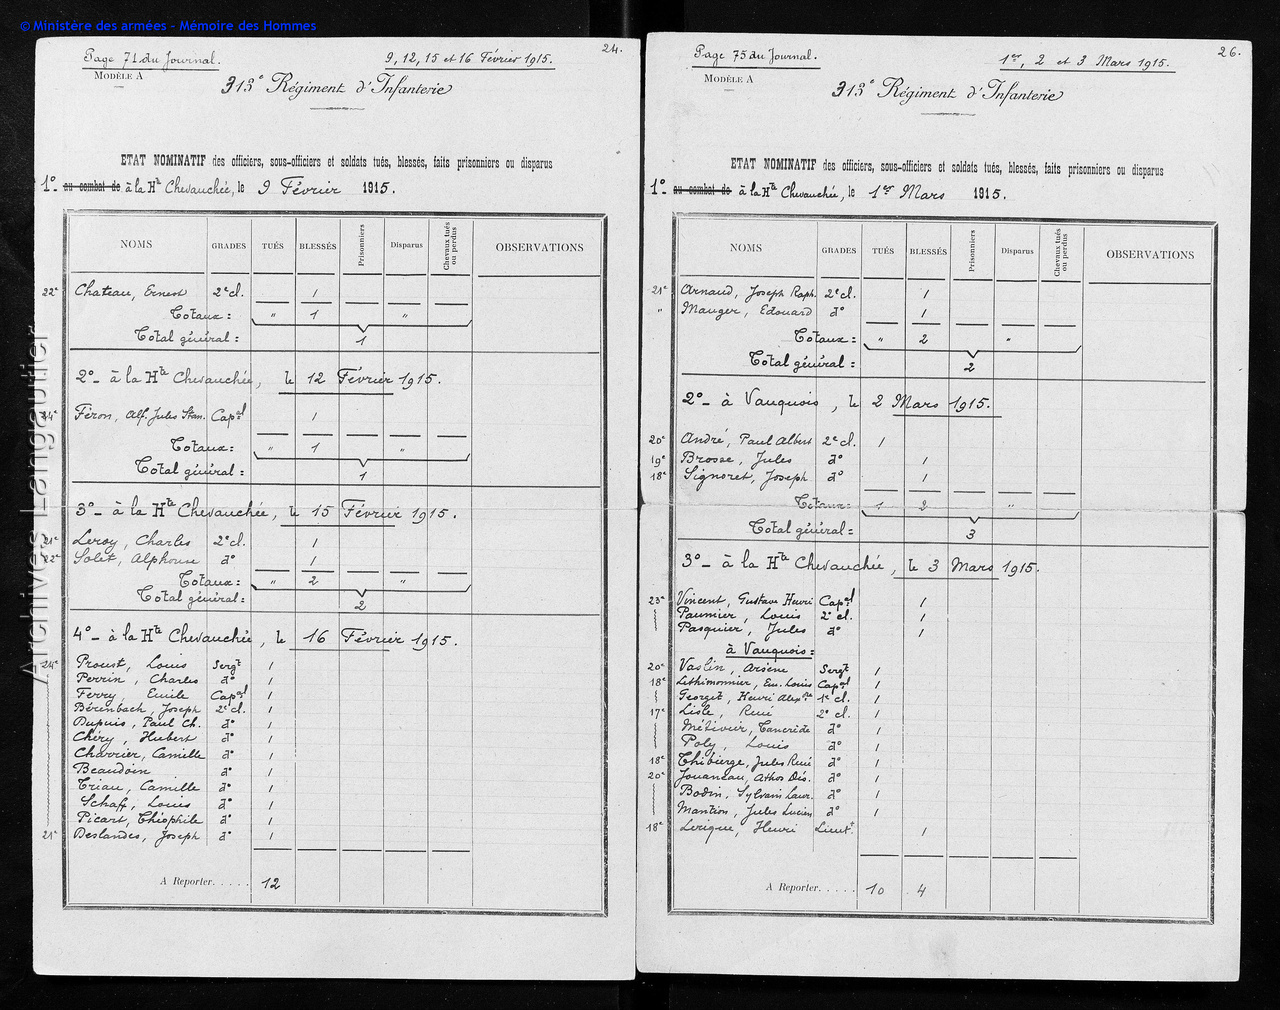 © Ministère des armées - Mémoire des Hommes
Archives Langautier
24.
Page 71 du Journal.
9, 12, 15 et 16 Février 1915.
MODÈLE A
313e Régiment d'Infanterie
ETAT NOMINATIF des officiers, sous-officiers et soldats tués, blessés, faits prisonniers ou disparus
1º au combat de à la Hte Chevauchée, le 9 Février 1915.
NOMS GRADES TUÉS BLESSÉS Prisonniers Disparus Chevaux tués ou perdus OBSERVATIONS
22e Chateau, Ernest 2e cl. 1
Totaux = " 1 "
Total général = 1
2º - à la Hte Chevauchée, le 12 Février 1915.
Féron, Alf. Jules Stan. Capal 1
Totaux = " 1 "
Total général = 1
3º - à la Hte Chevauchée, le 15 Février 1915.
21e Leroy, Charles 2e cl. 1
22e Solet, Alphonse dº 1
Totaux = " 2 "
Total général = 2
4º - à la Hte Chevauchée, le 16 Février 1915.
24e Proust, Louis Sergt 1
Perrin, Charles dº 1
Ferry, Emile Capal 1
Bérenbach, Joseph 2e cl. 1
Dupuis, Paul Ch. dº 1
Chéry, Hubert dº 1
Charrier, Camille dº 1
Beaudoin dº 1
Triau, Camille dº 1
Schaff, Louis dº 1
Picart, Théophile dº 1
21e Deslandes, Joseph dº 1
A Reporter..... 12
26.
Page 75 du Journal.
1er, 2 et 3 Mars 1915.
MODÈLE A
313e Régiment d'Infanterie
ETAT NOMINATIF des officiers, sous-officiers et soldats tués, blessés, faits prisonniers ou disparus
1º au combat de à la Hte Chevauchée, le 1er Mars 1915.
NOMS GRADES TUÉS BLESSÉS Prisonniers Disparus Chevaux tués ou perdus OBSERVATIONS
21e Arnaud, Joseph Raph. 2e cl. 1
" Mauger, Edouard dº 1
Totaux = " 2 "
Total général = 2
2º - à Vauquois, le 2 Mars 1915.
20e André, Paul Albert 2e cl. 1
19e Brosse, Jules dº 1
18e Signoret, Joseph dº 1
Totaux = 1 2 "
Total général = 3
3º - à la Hte Chevauchée, le 3 Mars 1915.
23e Vincent, Gustave Henri Capal 1
Paumier, Louis 2e cl. 1
Pasquier, Jules dº 1
à Vauquois =
20e Vaslin, Arsène Sergt 1
18e Lithimonnier, Em. Louis Capal 1
Georget, Henri Alexdre 1e cl. 1
17e Lisle, René 2e cl. 1
Métivier, Tancrède dº 1
Poly, Louis dº 1
18e Thibierge, Jules René dº 1
20e Jouaneau, Athos Dés. dº 1
Bodin, Sylvain Laur. dº 1
Mantion, Jules Lucien dº 1
18e Lerique, Henri Lieut. 1
A Reporter..... 10 4